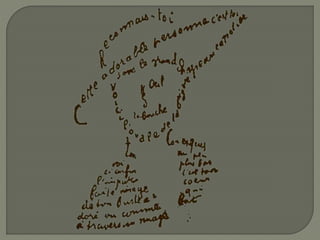 Reconnais-toi
Cette adorable personne c'est toi
Sous le grand chapeau canotier
Œil
Nez
la bouche
Voici l'ovale de ta figure
Ton cou exquis
Voi
ci enfin
l'impar
faite image
de ton buste a
doré vu comme
à travers un nuage
un peu
plus bas
c'est ton
cœur
qui
bat